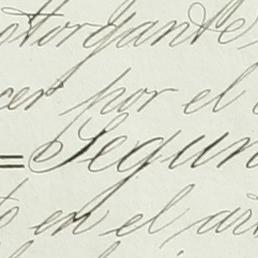 otorgante,
cer por el
= Segun
to en el art